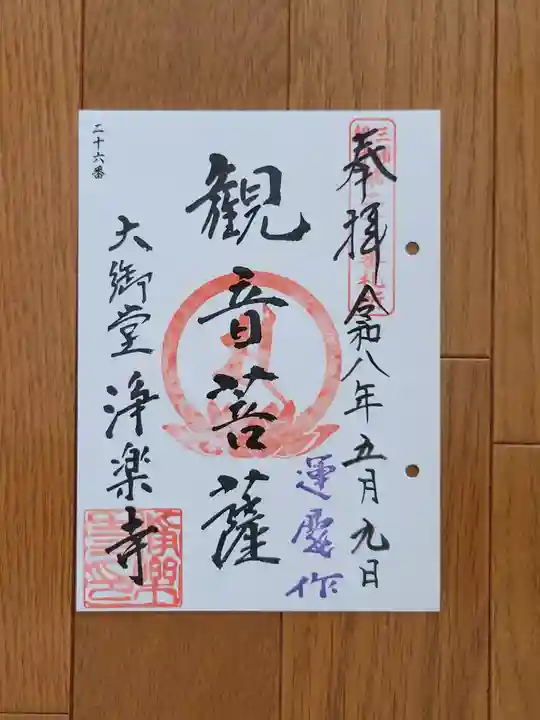 奉拝 令和八年五月九日
運慶作
観音菩薩
大御堂 浄楽寺
二十六番